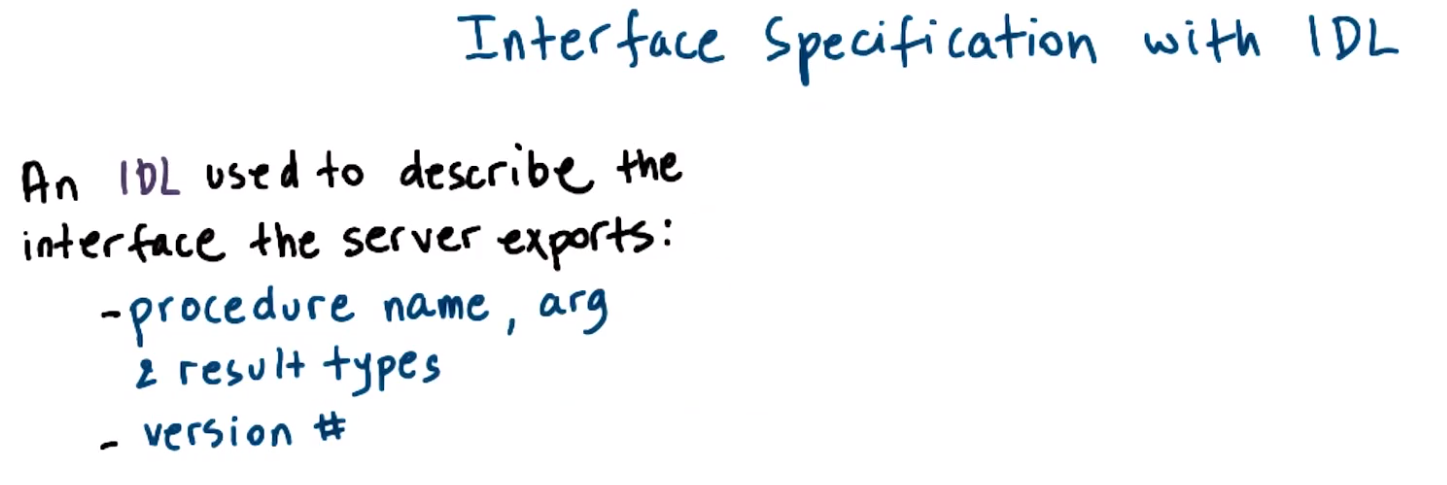 Interface Specification with IDL
An IDL used to describe the
interface the server exports:
- procedure name, arg
& result types
- version #